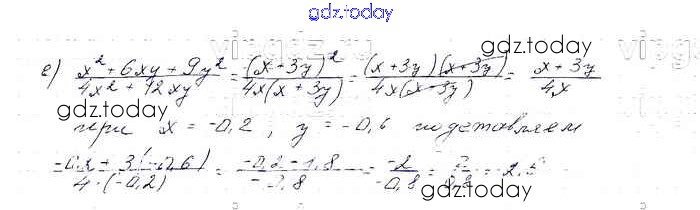 gdz.today
е) x² + 6xy + 9y² / 4x² + 12xy = (x + 3y)² / 4x(x + 3y) = (x + 3y)(x + 3y) / 4x(x + 3y) = x + 3y / 4x
gdz.today
gdz.today
при x = -0,2, y = -0,6 подставляем
-0,2 + 3(-0,6) / 4·(-0,2) = -0,2 - 1,8 / -0,8 = -2 / -0,8 = = 2,5
gdz.today
gdz.today